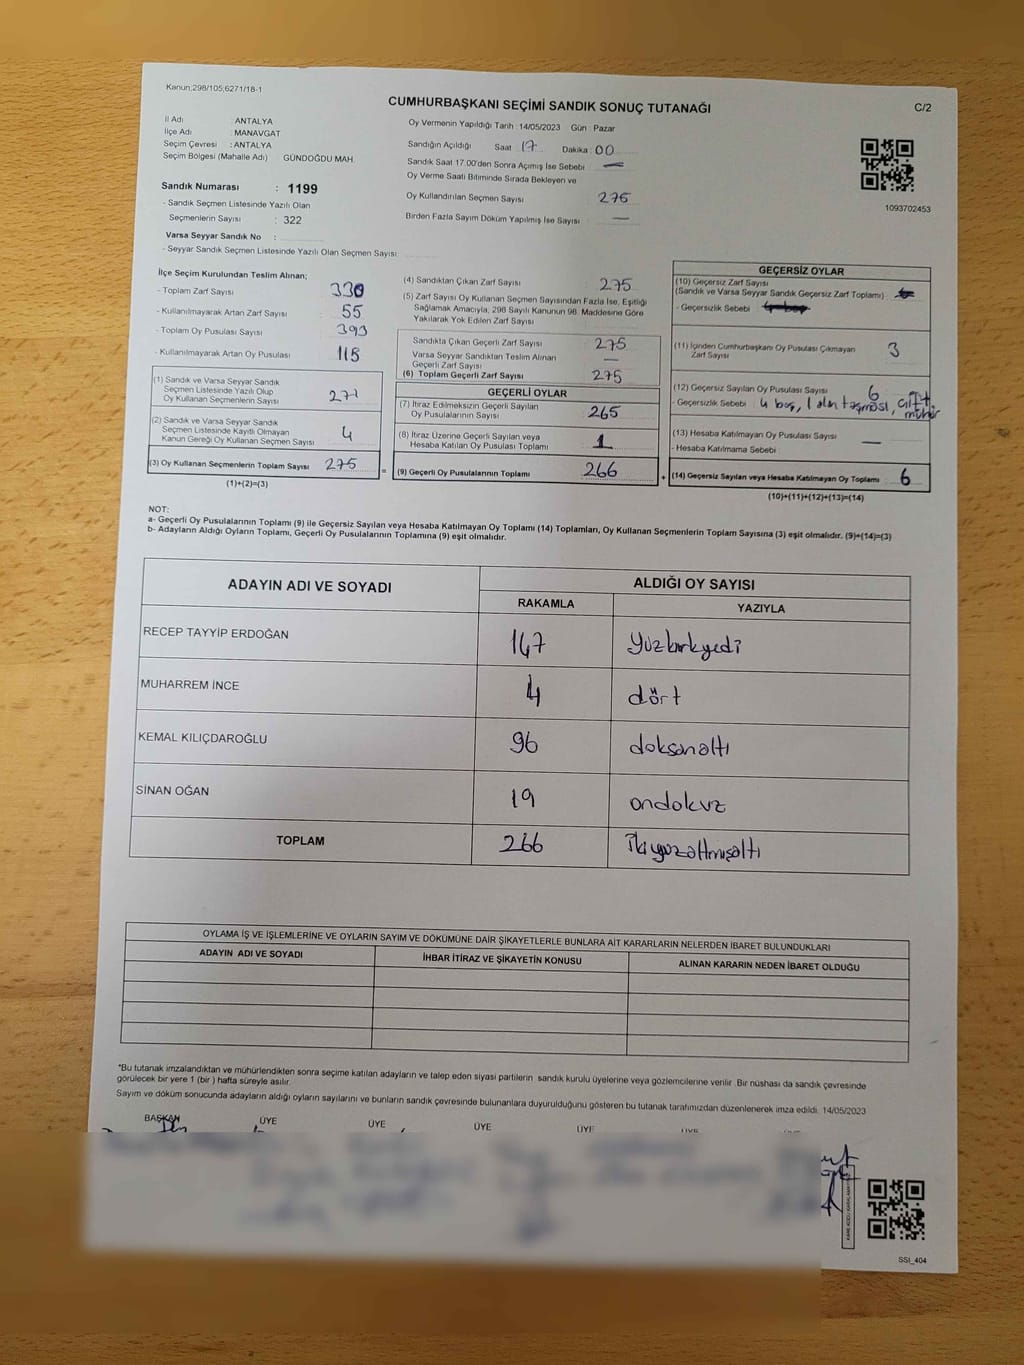 Kanun;298/105;6271/18-1
CUMHURBAŞKANI SEÇİMİ SANDIK SONUÇ TUTANAĞI
C/2
İl Adı : ANTALYA
İlçe Adı : MANAVGAT
Seçim Çevresi : ANTALYA
Seçim Bölgesi (Mahalle Adı) GÜNDOĞDU MAH.
Sandık Numarası : 1199
- Sandık Seçmen Listesinde Yazılı Olan
Seçmenlerin Sayısı : 322
Varsa Seyyar Sandık No :
- Seyyar Sandık Seçmen Listesinde Yazılı Olan Seçmen Sayısı:
Oy Vermenin Yapıldığı Tarih : 14/05/2023 Gün : Pazar
Sandığın Açıldığı Saat 17 Dakika : 00
Sandık Saat 17.00'den Sonra Açımış İse Sebebi : —
Oy Verme Saati Bitiminde Sırada Bekleyen ve
Oy Kullandırılan Seçmen Sayısı 275
Birden Fazla Sayım Döküm Yapılmış İse Sayısı : —
1093702453
İlçe Seçim Kurulundan Teslim Alınan;
- Toplam Zarf Sayısı 330
- Kullanılmayarak Artan Zarf Sayısı 55
- Toplam Oy Pusulası Sayısı 393
- Kullanılmayarak Artan Oy Pusulası 118
(1) Sandık ve Varsa Seyyar Sandık
Seçmen Listesinde Yazılı Olup
Oy Kullanan Seçmenlerin Sayısı 271
(2) Sandık ve Varsa Seyyar Sandık
Seçmen Listesinde Kayıtlı Olmayan
Kanun Gereği Oy Kullanan Seçmen Sayısı 4
(3) Oy Kullanan Seçmenlerin Toplam Sayısı 275
(1)+(2)=(3)
(4) Sandıktan Çıkan Zarf Sayısı 275
(5) Zarf Sayısı Oy Kullanan Seçmen Sayısından Fazla İse, Eşitliği
Sağlamak Amacıyla; 298 Sayılı Kanunun 98. Maddesine Göre
Yakılarak Yok Edilen Zarf Sayısı
Sandıkta Çıkan Geçerli Zarf Sayısı 275
Varsa Seyyar Sandıktan Teslim Alınan
Geçerli Zarf Sayısı —
(6) Toplam Geçerli Zarf Sayısı 275
GEÇERLİ OYLAR
(7) İtiraz Edilmeksizin Geçerli Sayılan
Oy Pusulalarının Sayısı 265
(8) İtiraz Üzerine Geçerli Sayılan veya
Hesaba Katılan Oy Pusulası Toplamı 1
= (9) Geçerli Oy Pusulalarının Toplamı 266 +
GEÇERSİZ OYLAR
(10) Geçersiz Zarf Sayısı
(Sandık ve Varsa Seyyar Sandık Geçersiz Zarf Toplamı)
- Geçersizlik Sebebi
(11) İçinden Cumhurbaşkanı Oy Pusulası Çıkmayan
Zarf Sayısı 3
(12) Geçersiz Sayılan Oy Pusulası Sayısı 6
- Geçersizlik Sebebi 4 boş, 1 alan taşması, çift
mühür
(13) Hesaba Katılmayan Oy Pusulası Sayısı —
- Hesaba Katılmama Sebebi
(14) Geçersiz Sayılan veya Hesaba Katılmayan Oy Toplamı 6
(10)+(11)+(12)+(13)=(14)
NOT:
a- Geçerli Oy Pusulalarının Toplamı (9) ile Geçersiz Sayılan veya Hesaba Katılmayan Oy Toplamı (14) Toplamları, Oy Kullanan Seçmenlerin Toplam Sayısına (3) eşit olmalıdır. (9)+(14)=(3)
b- Adayların Aldığı Oyların Toplamı, Geçerli Oy Pusulalarının Toplamına (9) eşit olmalıdır.
ADAYIN ADI VE SOYADI ALDIĞI OY SAYISI
RAKAMLA YAZIYLA
RECEP TAYYİP ERDOĞAN 147 Yüzkırkyedi
MUHARREM İNCE 4 dört
KEMAL KILIÇDAROĞLU 96 doksanaltı
SİNAN OĞAN 19 ondokuz
TOPLAM 266 İkiyüzaltmışaltı
OYLAMA İŞ VE İŞLEMLERİNE VE OYLARIN SAYIM VE DÖKÜMÜNE DAİR ŞİKAYETLERLE BUNLARA AİT KARARLARIN NELERDEN İBARET BULUNDUKLARI
ADAYIN ADI VE SOYADI İHBAR İTİRAZ VE ŞİKAYETİN KONUSU ALINAN KARARIN NEDEN İBARET OLDUĞU
*Bu tutanak imzalandıktan ve mühürlendikten sonra seçime katılan adayların ve talep eden siyasi partilerin sandık kurulu üyelerine veya gözlemcilerine verilir. Bir nüshası da sandık çevresinde
görülecek bir yere 1 (bir ) hafta süreyle asılır.
Sayım ve döküm sonucunda adayların aldığı oyların sayılarını ve bunların sandık çevresinde bulunanlara duyurulduğunu gösteren bu tutanak tarafımızdan düzenlenerek imza edildi. 14/05/2023
BAŞKAN ÜYE ÜYE ÜYE ÜYE
SSI_404